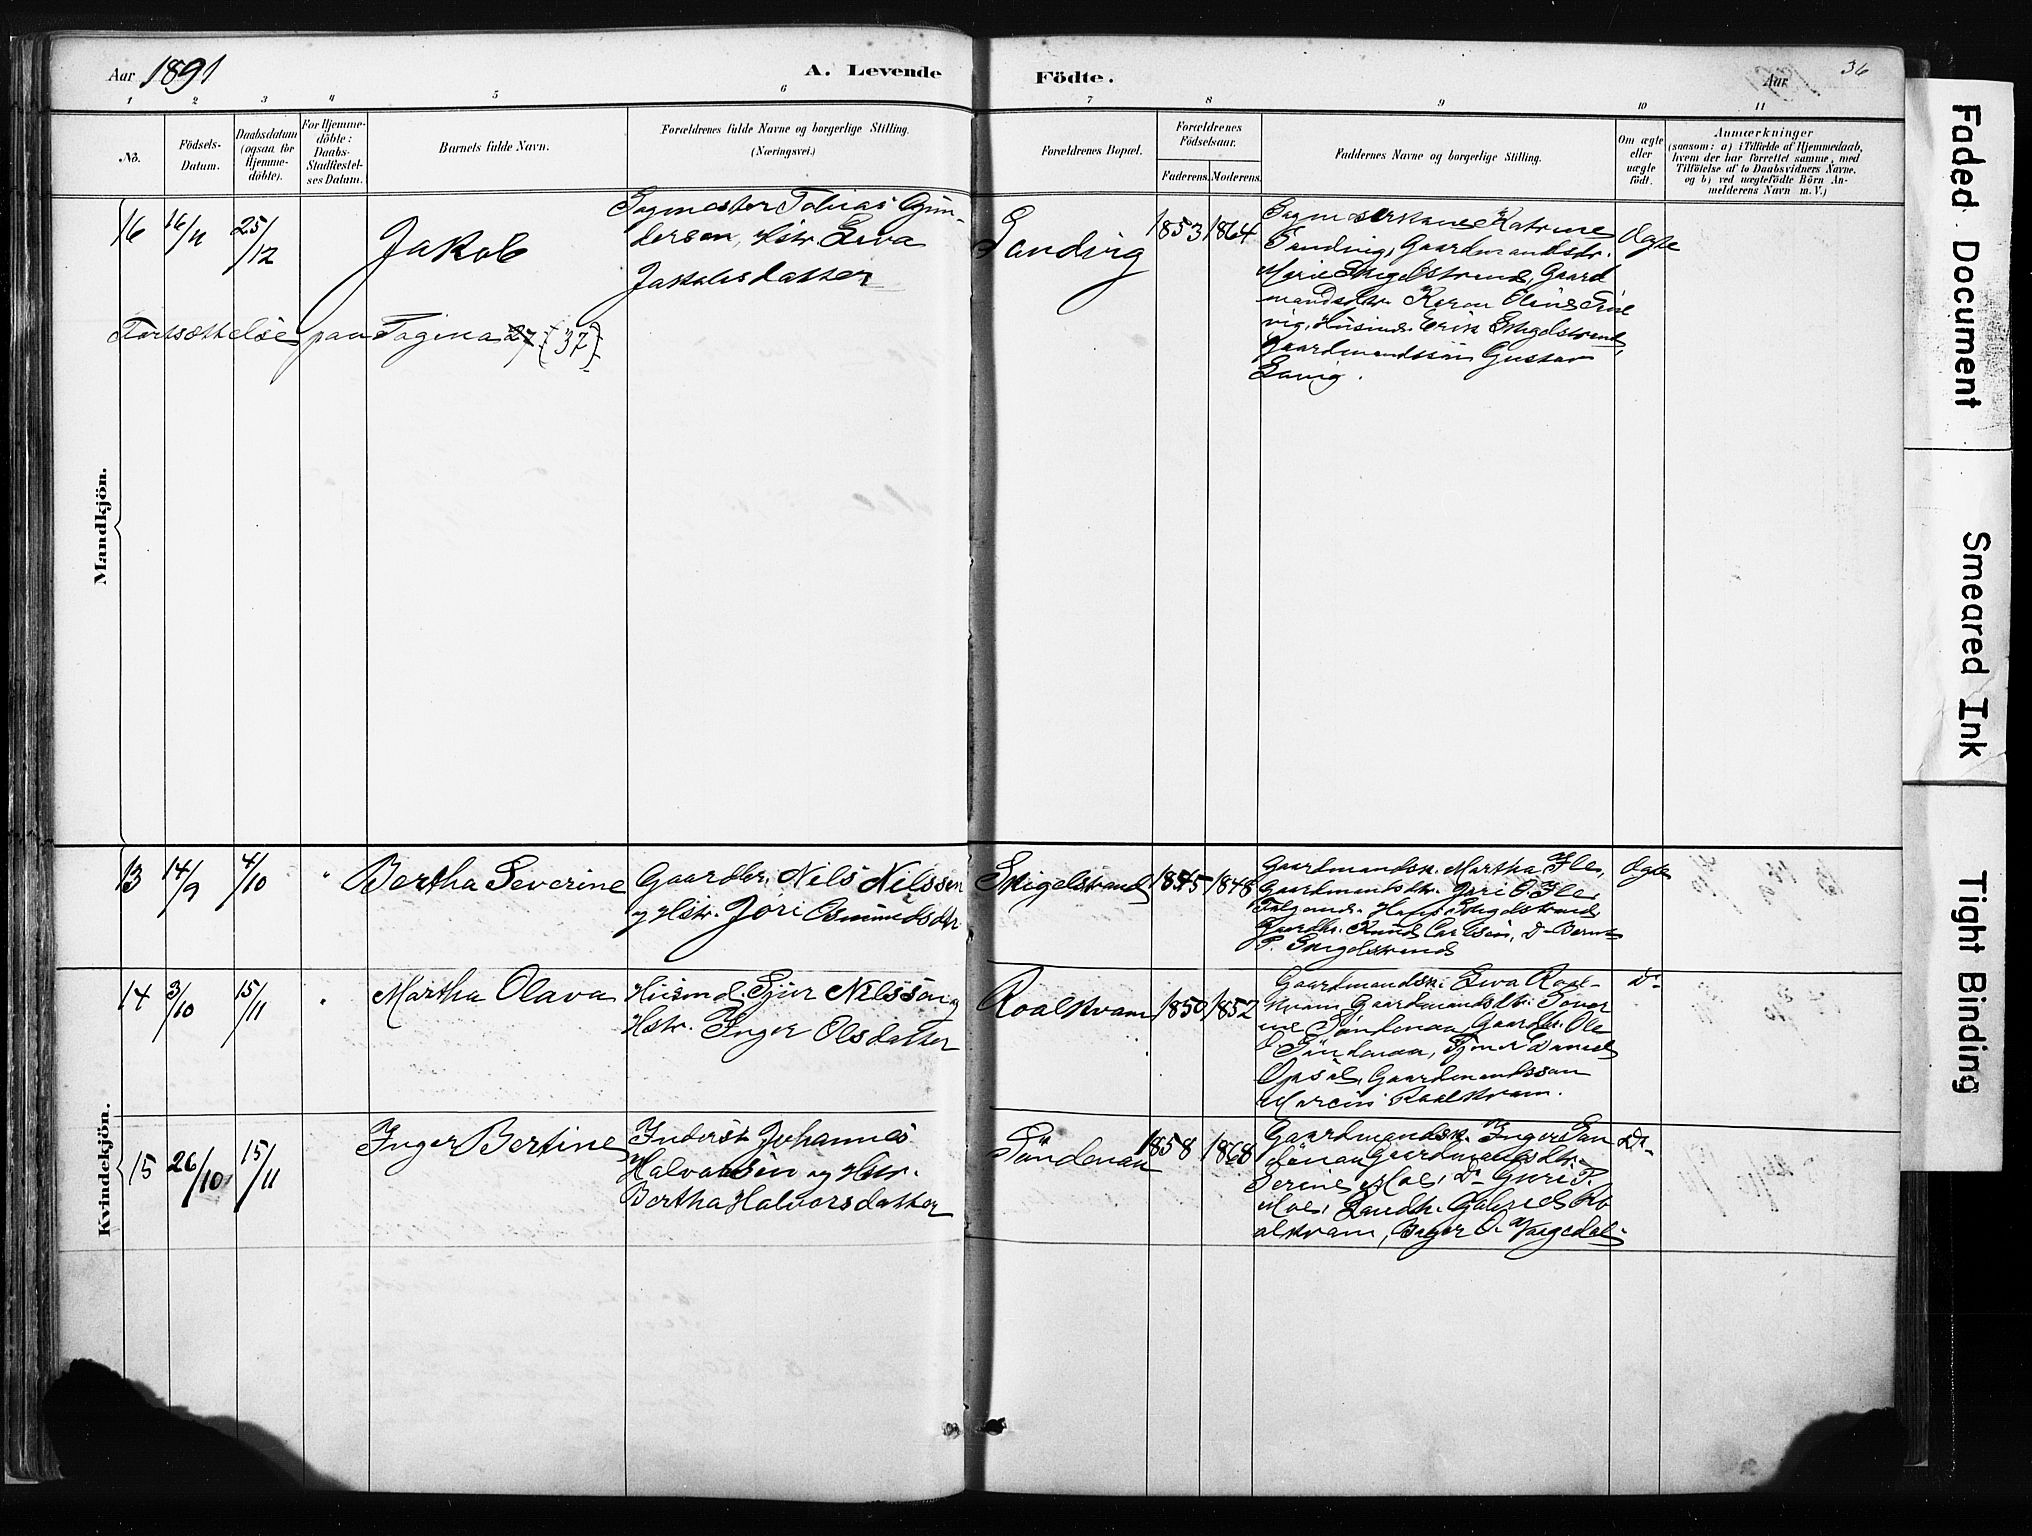 Aar 1891
A. Levende
Födte.
Aar
36
1 2 3 4 5 6 7 8 9 10 11
No.
Födsels-
Datum.
Daabsdatum
(ogsaa for
Hjemme-
döbte).
For Hjemme-
döbte:
Daabs-
Stadfæstel-
ses Datum.
Barnets fulde Navn.
Forældrenes fulde Navne og borgerlige Stilling.
(Næringsvei.)
Forældrenes Bopæl.
Forældrenes
Födselsaar.
Faderens.
Moderens.
Faddernes Navne og borgerlige Stilling.
Om ægte
eller
uægte
födt.
Anmærkninger
(saasom: a) i Tilfælde af Hjemmedaab,
hvem der har forrettet samme, med
Tilföielse af to Daabsvidners Navne.
og b) ved uægtefödte Börn An-
melderens Navn m. V.)
Mandkjön.
16
16/11
25/12
Jakob
Sagmester Tobias Gun-
dersen, Hstr. Eva
Jakobsdatter
Sandvig
1853
1864
Katrine
Sandvig, Gaardmandsdtr.
Marie Skigelstrand, Gaard
mandsdtr. Karen Oline
vig, Erik Skigelstrand,
Gaardmandssön Gustav
Ægte
Fortsættelse paa Pagina 27 (37)
Kvindekjön.
13
14/9
4/10
"
Bertha Severine
Gaardbr. Nils Nilssen
og Hstr. Jori Osmundsdtr.
Skigelstrand
1845
1848
Gaardmandsk. Martha Fle,
Gaardmandsdtr. Jori O. Fle
Hans Skigelstrand
Gaardbr. Knud Carlsen, Do
P. Skigelstrand
Ægte
14
3/10
15/11
"
Martha Olava
Husmd. Sjur Nilssön og
Hstr. Inger Olsdatter
Roalkvam
1850
1852
Gaardmandsk. Eva Roal-
kvam, Gaardmandsdtr.
Söndenaa, Gaardbr. Ole
O. Söndenaa, Daniel
Opsal, Gaardmandssön
Roalkvam.
Do
15
26/10
15/11
Inger Bertine
Inderst Johannes
Halvorsen og Hstr.
Bertha Halvorsdatter
Söndenaa
1858
1868
Gaardmandsk. Inger Sön
denaa, Gaardmandsdtr.
Serine Moe, Do Guri P.
Moe, Gabriel Ro
alkvam,
Do
Faded Document
Smeared Ink
Tight Binding